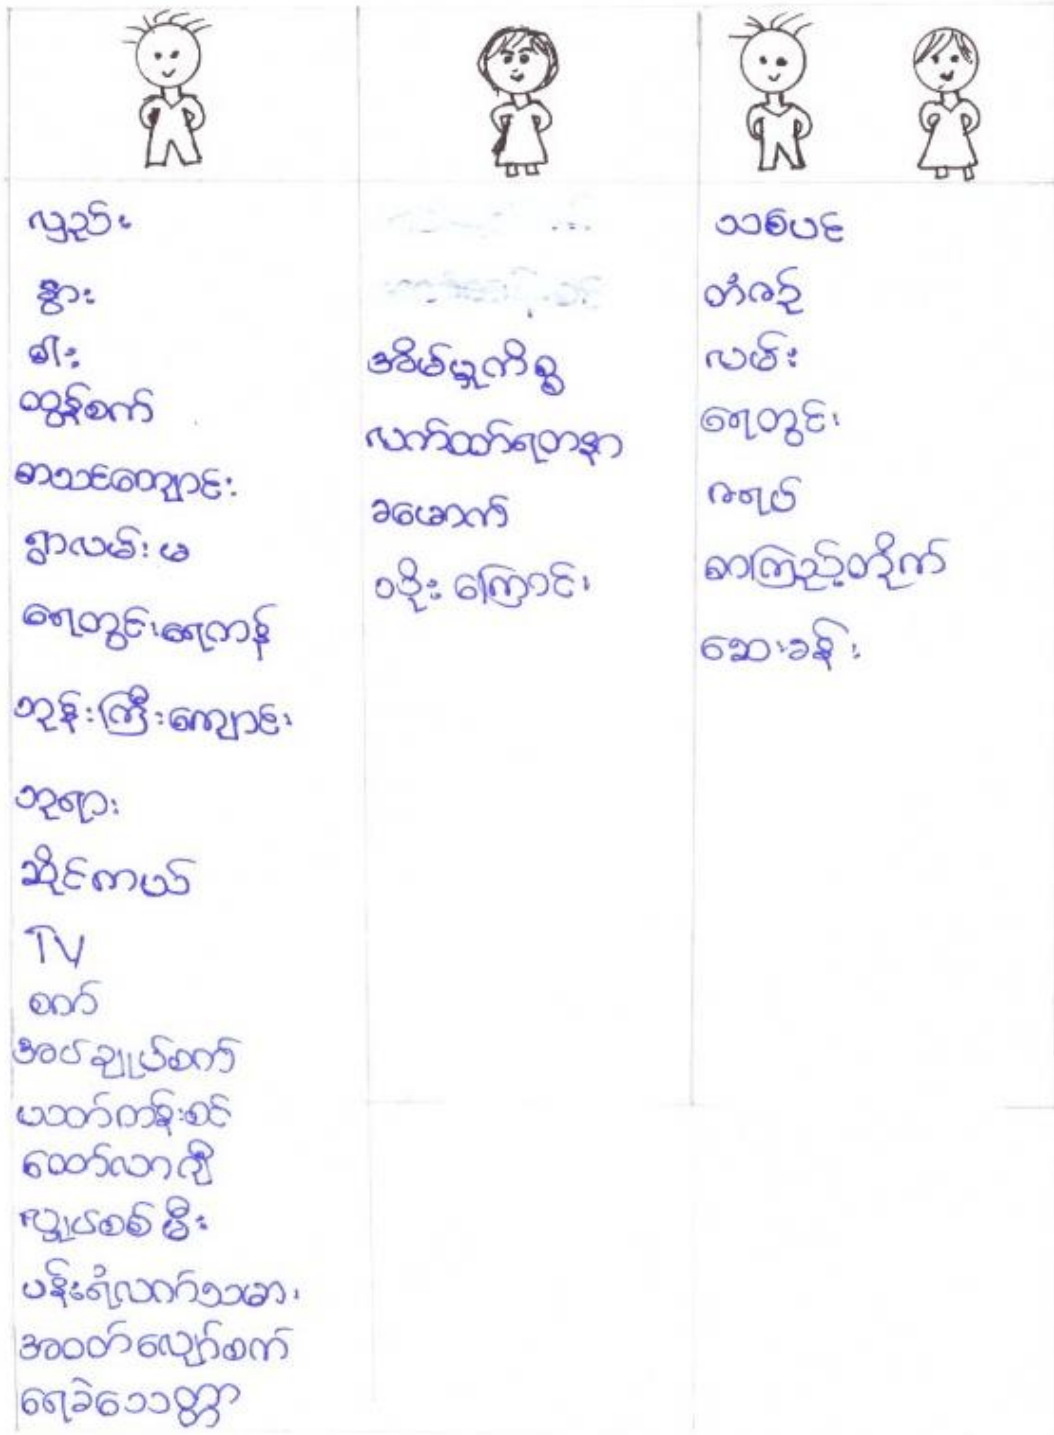 လှည်း
နွား
ဓါး
ထွန်စက်
စာသင်ကျောင်း
ရွာလမ်းမ
ရေတွင်းရေကန်
ဘုန်းကြီးကျောင်း
ဘုရား
ဆိုင်ကယ်
TV
စက်
အပ်ချုပ်စက်
ပသတ်ကန်းစင်
ထော်လာဂျီ
လျှပ်စစ်မီး
ပန်းရံလက်သမား
အဝတ်လျှော်စက်
ရေခဲသေတ္တာ
အိမ်မှုကိစ္စ
လက်ထပ်ရတနာ
ခမောက်
သစ်ပင်
တံစဉ်
လမ်း
ရေတွင်း
ဇရပ်
စာကြည့်တိုက်
ဆေးခန်း